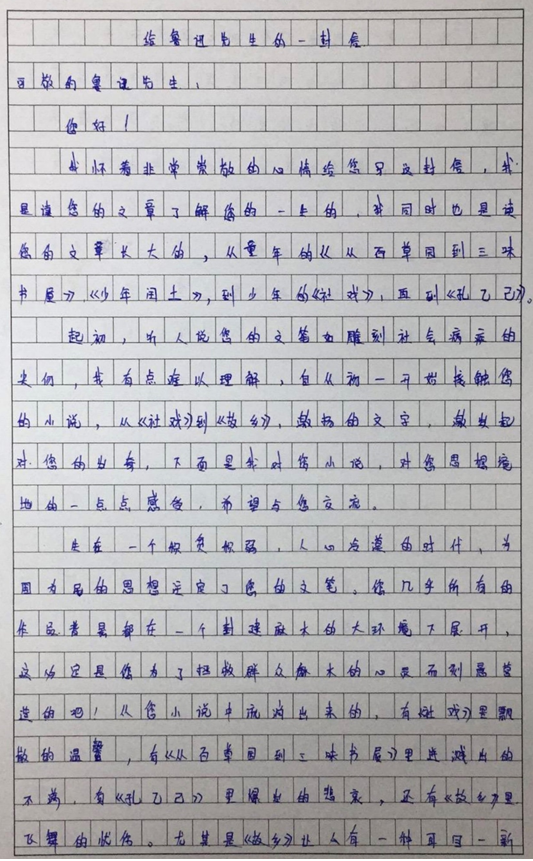 给鲁迅先生的一封信
可敬的鲁迅先生：
您好！
我怀着非常崇敬的心情给您写这封信，我
是读您的文章了解您的一生的，我同时也是读
您的文章长大的，从童年的《从百草园到三味
书屋》《少年闰土》，到少年的《社戏》，再到《孔乙己》。
起初，听人说您的文笔如雕刻社会病症的
尖刀，我有点难以理解，自从初一开始接触您
的小说，从《社戏》到《故乡》，激扬的文字，激发起
对您的，下面是我对您小说，对您思想境
地的一点点感受，希望与您交流。
生在一个积贫积弱，人心冷漠的时代，为
国为民的思想注定了您的文笔。您几乎所有的
作品背景都在一个封建麻木的大环境下展开，
这必定是您为了拯救群众麻木的心灵而刻意营
造的吧！从您小说中流淌出来的，有《社戏》里飘
散的温馨，有《从百草园到三味书屋》里迸溅出的
不满，有《孔乙己》里爆出的悲哀，还有《故乡》里
飞舞的忧伤。尤其是《故乡》让人有一种耳目一新